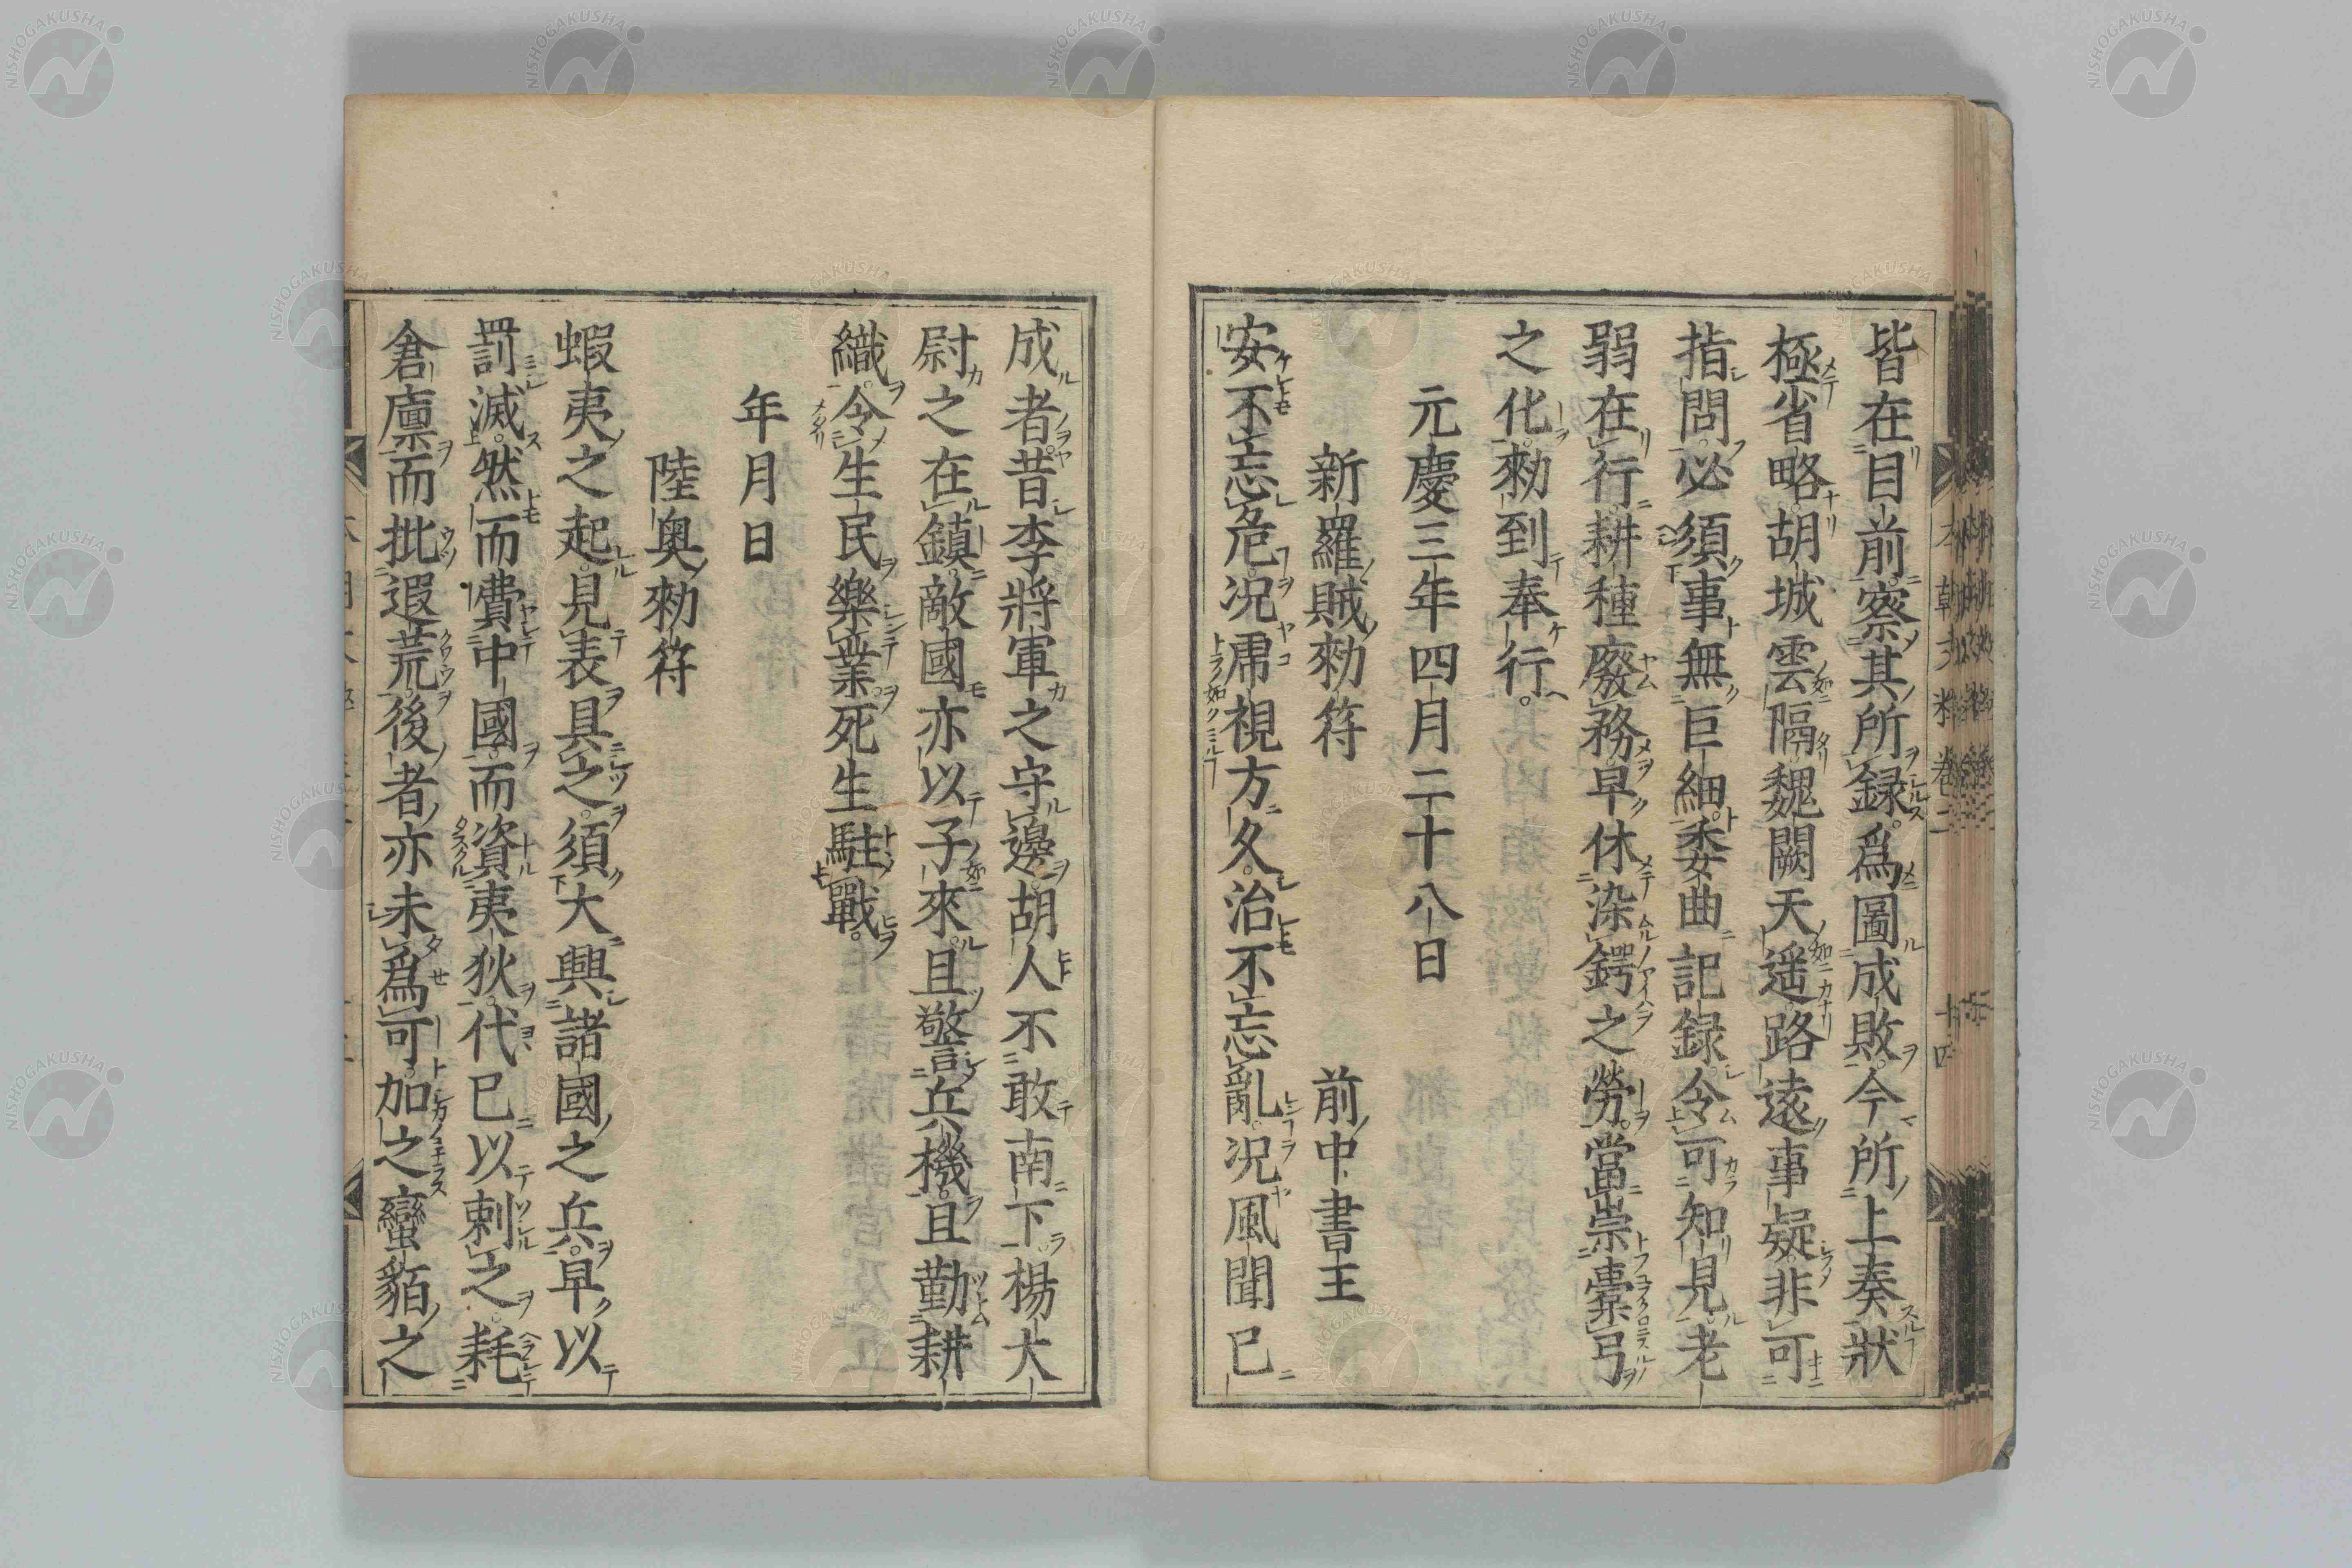 皆在目前察其所録爲圖成敗今所上奏狀
極省略胡城雲隔魏闕天遥路遠事疑非可
指問必須事無巨細委曲記録令可知見老
弱在行耕種廢務早休染鍔之勞當崇櫜弓
之化勑到奉行。
元慶三年四月二十八日
新羅賊勑符 前中書王
安不忘危況虎視方久治不忘亂況風聞已
成者昔李將軍之守邊胡人不敢南下楊大
尉之在鎮敵國亦以子來且警兵機且勤耕
織令生民樂業死生駐戰。
年月日
陸奥勑符
蝦夷之起見表具之須大興諸國之兵早以
罰滅然而憓中國而資夷狄代已以剌之耗
倉廩而批遐荒後者亦未爲可加之蠻貊之
本朝文粹卷二 十四
NISHOGAKUSHA